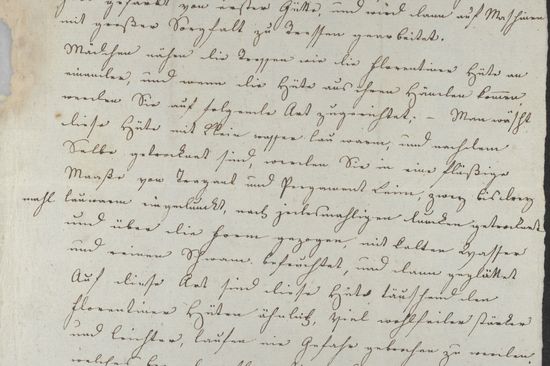 gefärbt von erster Güte, und wird dann auf Maschinen
mit großer Sorgfalt zu Tressen gearbeitet.
Mädchen nähen die Tressen wie die florentiner Hüte an
einander, und wenn die Hüte aus ihren Händen kommen,
werden Sie auf folgende Art zugerichtet: – Man wäscht
diese Hüte mit Klein wasser lauwarm, und nachdem
Selbe getrocknet sind, werden Sie in eine flüßige
Maaße von Tragant und Pergament Leim, zwey bis drey
mahl lauwarm eingedunckt, nach jedesmahligen duncken getrocknet
und über die Form gezogen, mit kalten Wasser
und reinen Schwam befeuchtet, und dann geglättet
Auf diese Art sind diese Hüte täuschend den
florentiner Hüten ähnlich, viel wohlfeiler stärker
und leichter, laufen nie Gefahr gebrochen zu werden,
welches